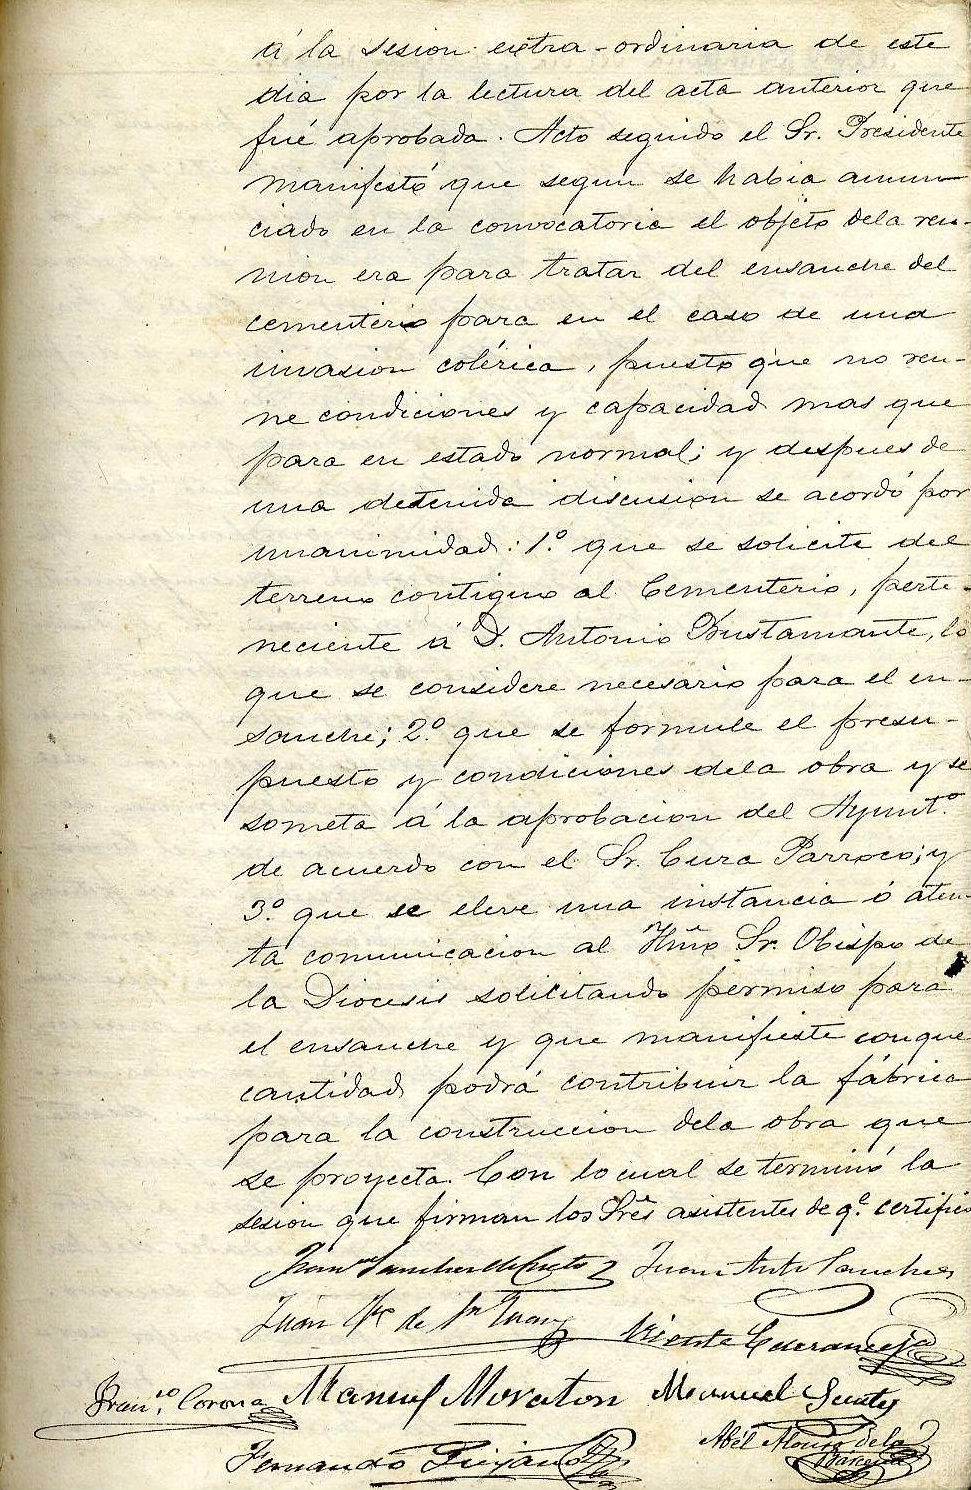 á la sesion extra-ordinaria de este
dia por la lectura del acta anterior que
fué aprobada. Acto seguido el Sr. Presidente
manifestó que segun se habia anun
ciado en la convocatoria el objeto dela reu-
nion era para tratar del ensanche del
cementerio para en el caso de una
invasion colérica, puesto que no reu-
ne condiciones y capacidad mas que
para en estado normal; y despues de
una detenida discusion se acordó por
unanimidad: 1.º que se solicite del
terreno contiguo al Cementerio, perte-
neciente á D. Antonio Bustamante, lo
que se considere necesario para el en-
sanche; 2.º que se formule el presu-
puesto y condiciones dela obra y se
someta á la aprobacion del Ayunt.º
de acuerdo con el Sr. Cura Parroco; y
3.º que se eleve una instancia ó aten-
ta comunicacion al Iltmo Sr. Obispo de
la Diocesis solicitando permiso para
el ensanche y que manifieste conque
cantidad podrá contribuir la fábrica
para la construccion dela obra que
se proyecta. Con lo cual se terminó la
sesion que firman los Sres asistentes de q.e certifico
Juan Anto Sanchez
Juan de Sn Juan Vicente
Fran.co Corona Manuel Moraton Manuel
Fernando Abél Alonso de la
Bárcena